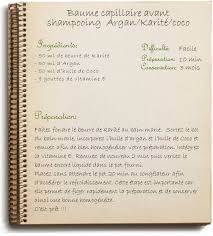 Baume capillaire avant
shampooing Argan/Karité/coco
Ingrédients:
- 50 ml de beurre de Karité
- 50 ml d'Argan
- 50 ml d'huile de Coco
- 9 gouttes de vitamine E
Difficulté: Facile
Préparation: 10 min
Conservation: 3 mois
Préparation:
Faites fondre le beurre de karité au bain-marie. Sortez le bol
du bain-marie, puis ajoutez l'huile d'argan et l'huile de coco
à votre préparation. Intégrez
la vitamine E. Remuez de nouveau 2 min puis versez le
baume liquide dans le pot.
Placez le sans attendre le pot 20 min au congélateur afin
d'accélérer le refroidissement. Cette étape est importante car
elle permet de figer rapidement la préparation et de conserver
un aspect homogène.
C'est prêt !!!